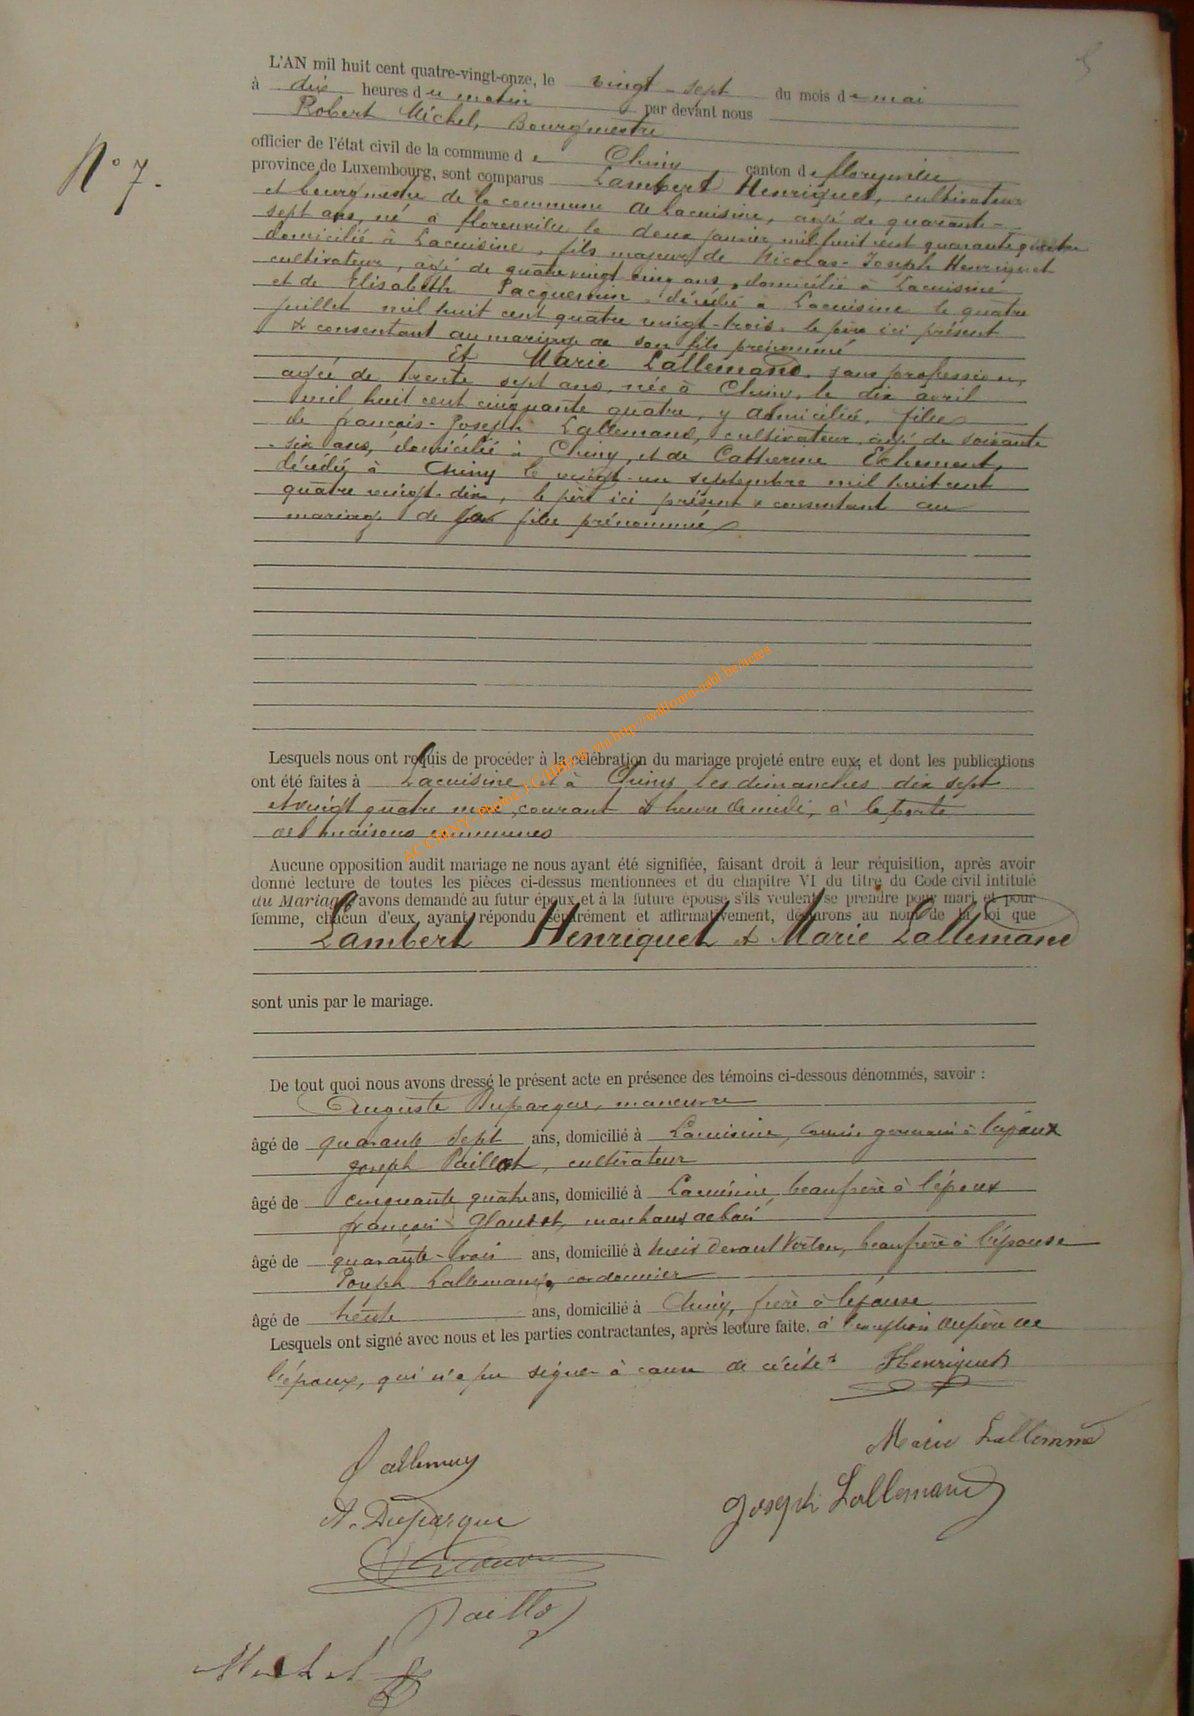 N° 7.
L'AN mil huit cent quatre-vingt-onze, le vingt-sept du mois de mai
à dix heures du matin par devant nous
Robert Michel, Bourgmestre
officier de l'état civil de la commune de Chiny canton de florenville
province de Luxembourg, sont comparus Lambert Henriquet, cultivateur
et bourgmestre de la commune de Lacuisine, agé de quarante-
sept ans, né à florenville le deux janvier mil huit cent quarante quatre
domicilié à Lacuisine, fils majeur de Nicolas-Joseph Henriquet
cultivateur, agé de quatre vingt cinq ans, domicilié à Lacuisine
et de Elisabeth Jacquemin décédée à Lacuisine le quatre
juillet mil huit cent quatre vingt-trois. le père ici présent
& consentant au mariage de son fils prénommé
Et Marie Lallemand, sans profession,
agée de trente sept ans, née à Chiny, le dix avril
mil huit cent cinquante quatre, y domiciliée, fille
de françois-Joseph Lallemand, cultivateur, agé de soixante
six ans, domicilié à Chiny, et de Catherine
décédée à Chiny le vingt-un septembre mil huit cent
quatre vingt-dix, le père ici présent & consentant au
mariage de sa fille prénommée
Lesquels nous ont requis de procéder à la célébration du mariage projeté entre eux, et dont les publications
ont été faites à Lacuisine et à Chiny les dimanches dix sept
et vingt quatre mai, courant à heure de midi, à la porte
des maisons communes
Aucune opposition audit mariage ne nous ayant été signifiée, faisant droit à leur réquisition, après avoir
donné lecture de toutes les pièces ci-dessus mentionnées et du chapitre VI du titre du Code civil intitulé
du Mariage, avons demandé au futur époux et à la future épouse s'ils veulent se prendre pour mari et pour
femme, chacun d'eux ayant répondu séparément et affirmativement, déclarons au nom de la loi que
Lambert Henriquet et Marie Lallemand
sont unis par le mariage.
De tout quoi nous avons dressé le présent acte en présence des témoins ci-dessous dénommés, savoir :
Auguste Duparque, manoeuvre
âgé de quarante sept ans, domicilié à Lacuisine, cousin germain à l'époux
Joseph Paillot, cultivateur
âgé de cinquante quatre ans, domicilié à Lacuisine, beau frère à l'époux
françois marchand de bois
âgé de quarante-trois ans, domicilié à Meix devant Virton, beau frère à l'épouse
Joseph Lallemand, cordonnier
âgé de trente ans, domicilié à Chiny, frère à l'épouse
Lesquels ont signé avec nous et les parties contractantes, après lecture faite. à l'exception du père de
l'époux, qui n'a pu signer à cause de cécité. Henriquet
Marie Lallemand
Lallemand
Joseph Lallemand
A. Duparque
Paillot
Michel